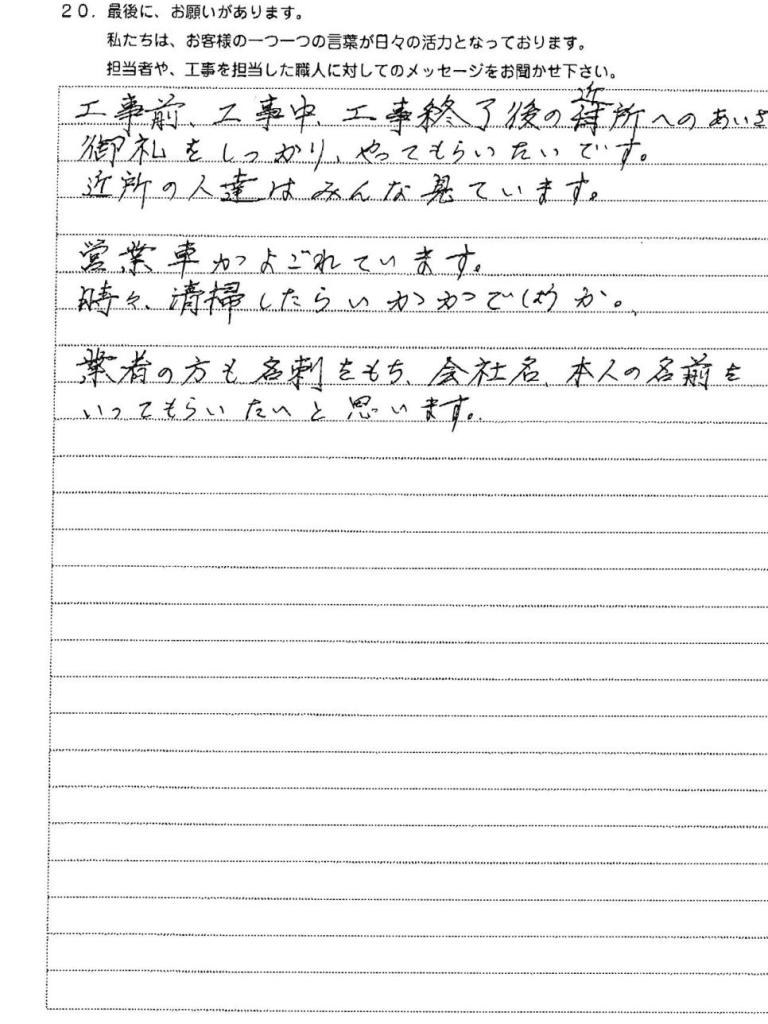 20. 最後に、お願いがあります。
私たちは、お客様の一つ一つの言葉が日々の活力となっております。
担当者や、工事を担当した職人に対してのメッセージをお聞かせ下さい。
工事前、工事中、工事終了後の近所へのあいさ
御礼をしっかり、やってもらいたいです。
近所の人達はみんな見ています。
営業車がよごれています。
時々、清掃したらいかがでしょうか。
業者の方も名刺をもち、会社名、本人の名前を
いってもらいたいと思います。